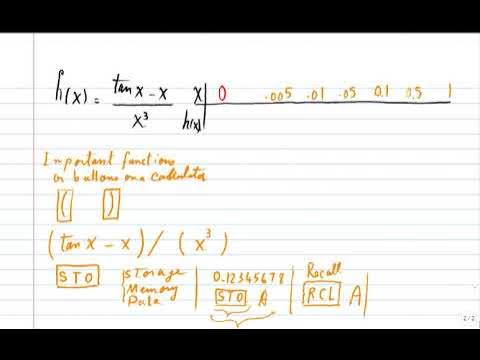 h(x) = (tan x - x) / x³
x 0 .005 .01 .05 0.1 0.5 1
h(x)
Important functions
or buttons on a calculator
( )
(tan x - x) / (x³)
STO
Storage
Memory
Data
0.12345678
STO A
Recall
RCL A
2 / 2